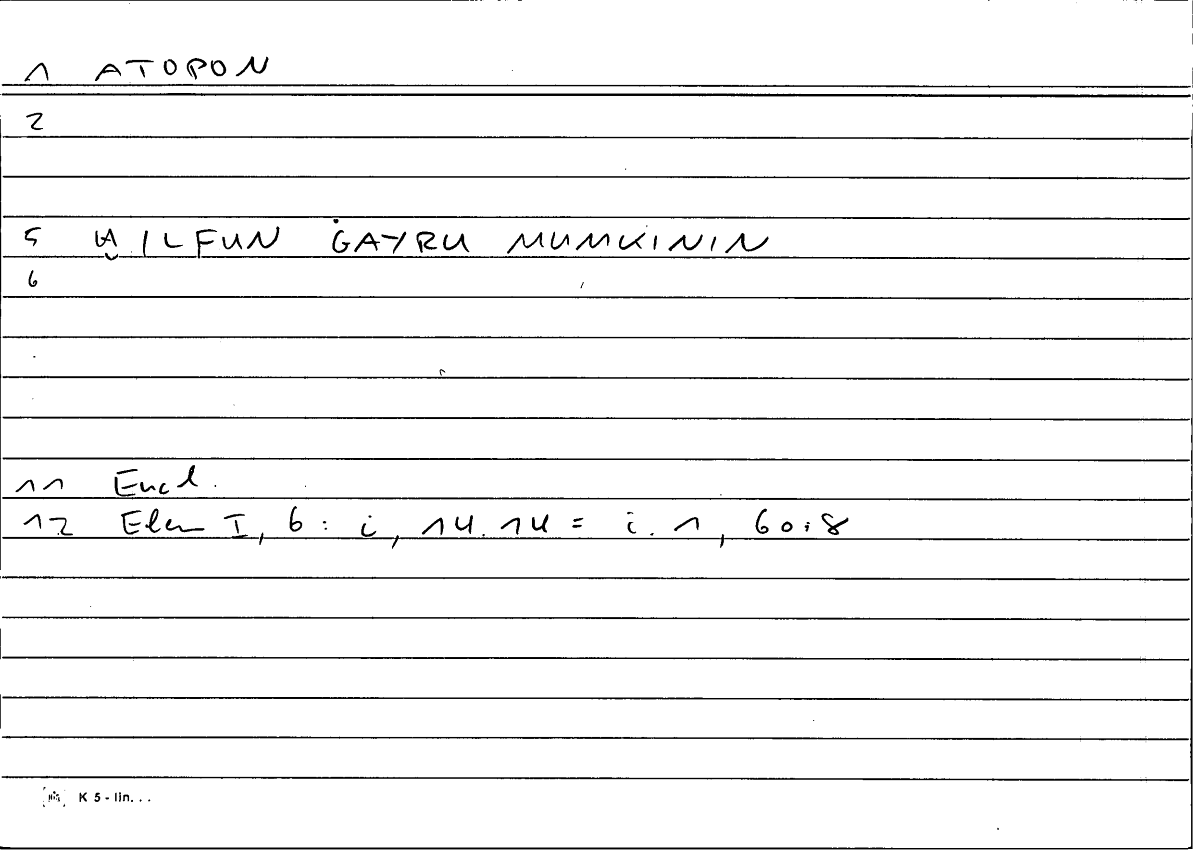 1 ATOPON
2
5 ḪILFUN ĠAYRU MUMKININ
6
11 Eucl.
12 Elem I, 6 : i, 14.14 = i. 1, 60:8
K 5 - lin. . .